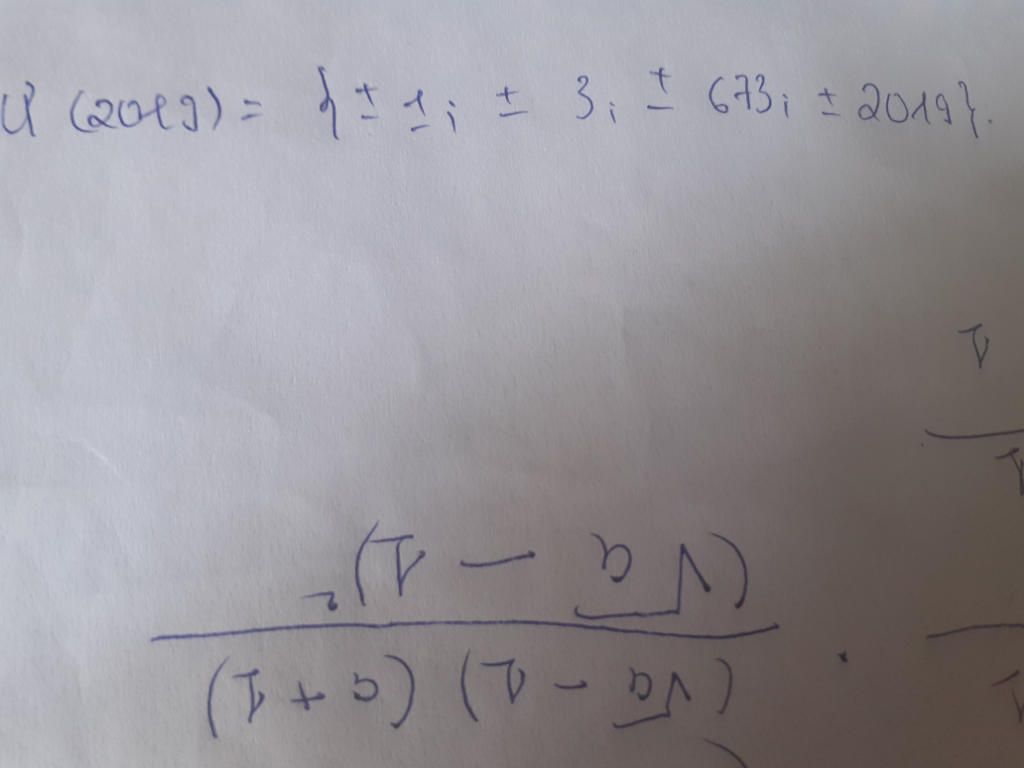 Ư (2019) = {± 1; ± 3; ± 673; ± 2019}.
(√a - 1) (a + 1)
(√a - 1)²
1